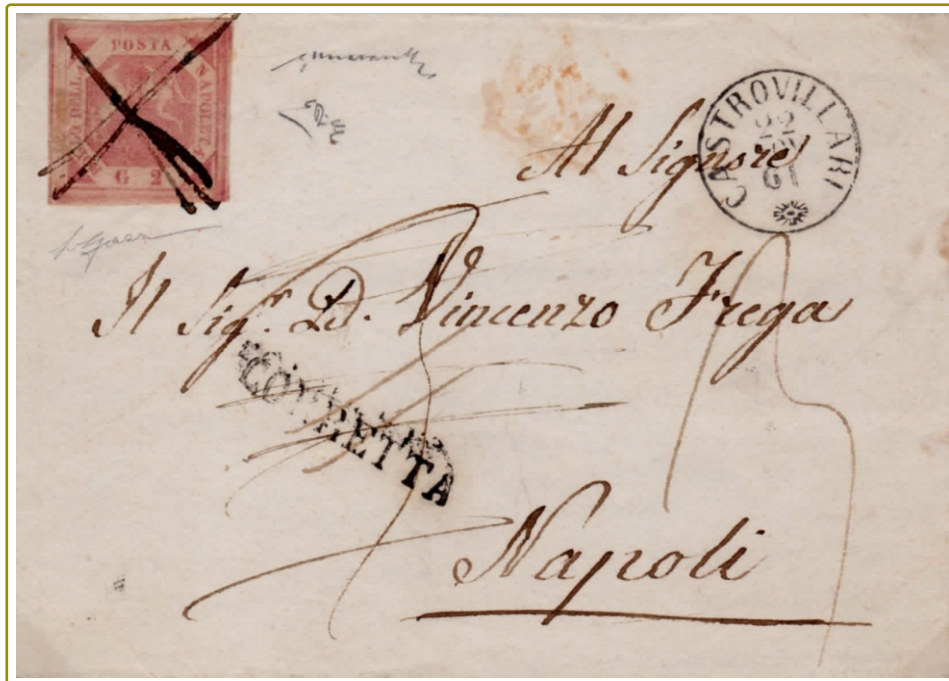 POSTA
NAPOLET
G. 2
CASTROVILLARI
22
61
Al Signore
Il Sig.r D. Vincenzo Frega
CORRETTA
Napoli